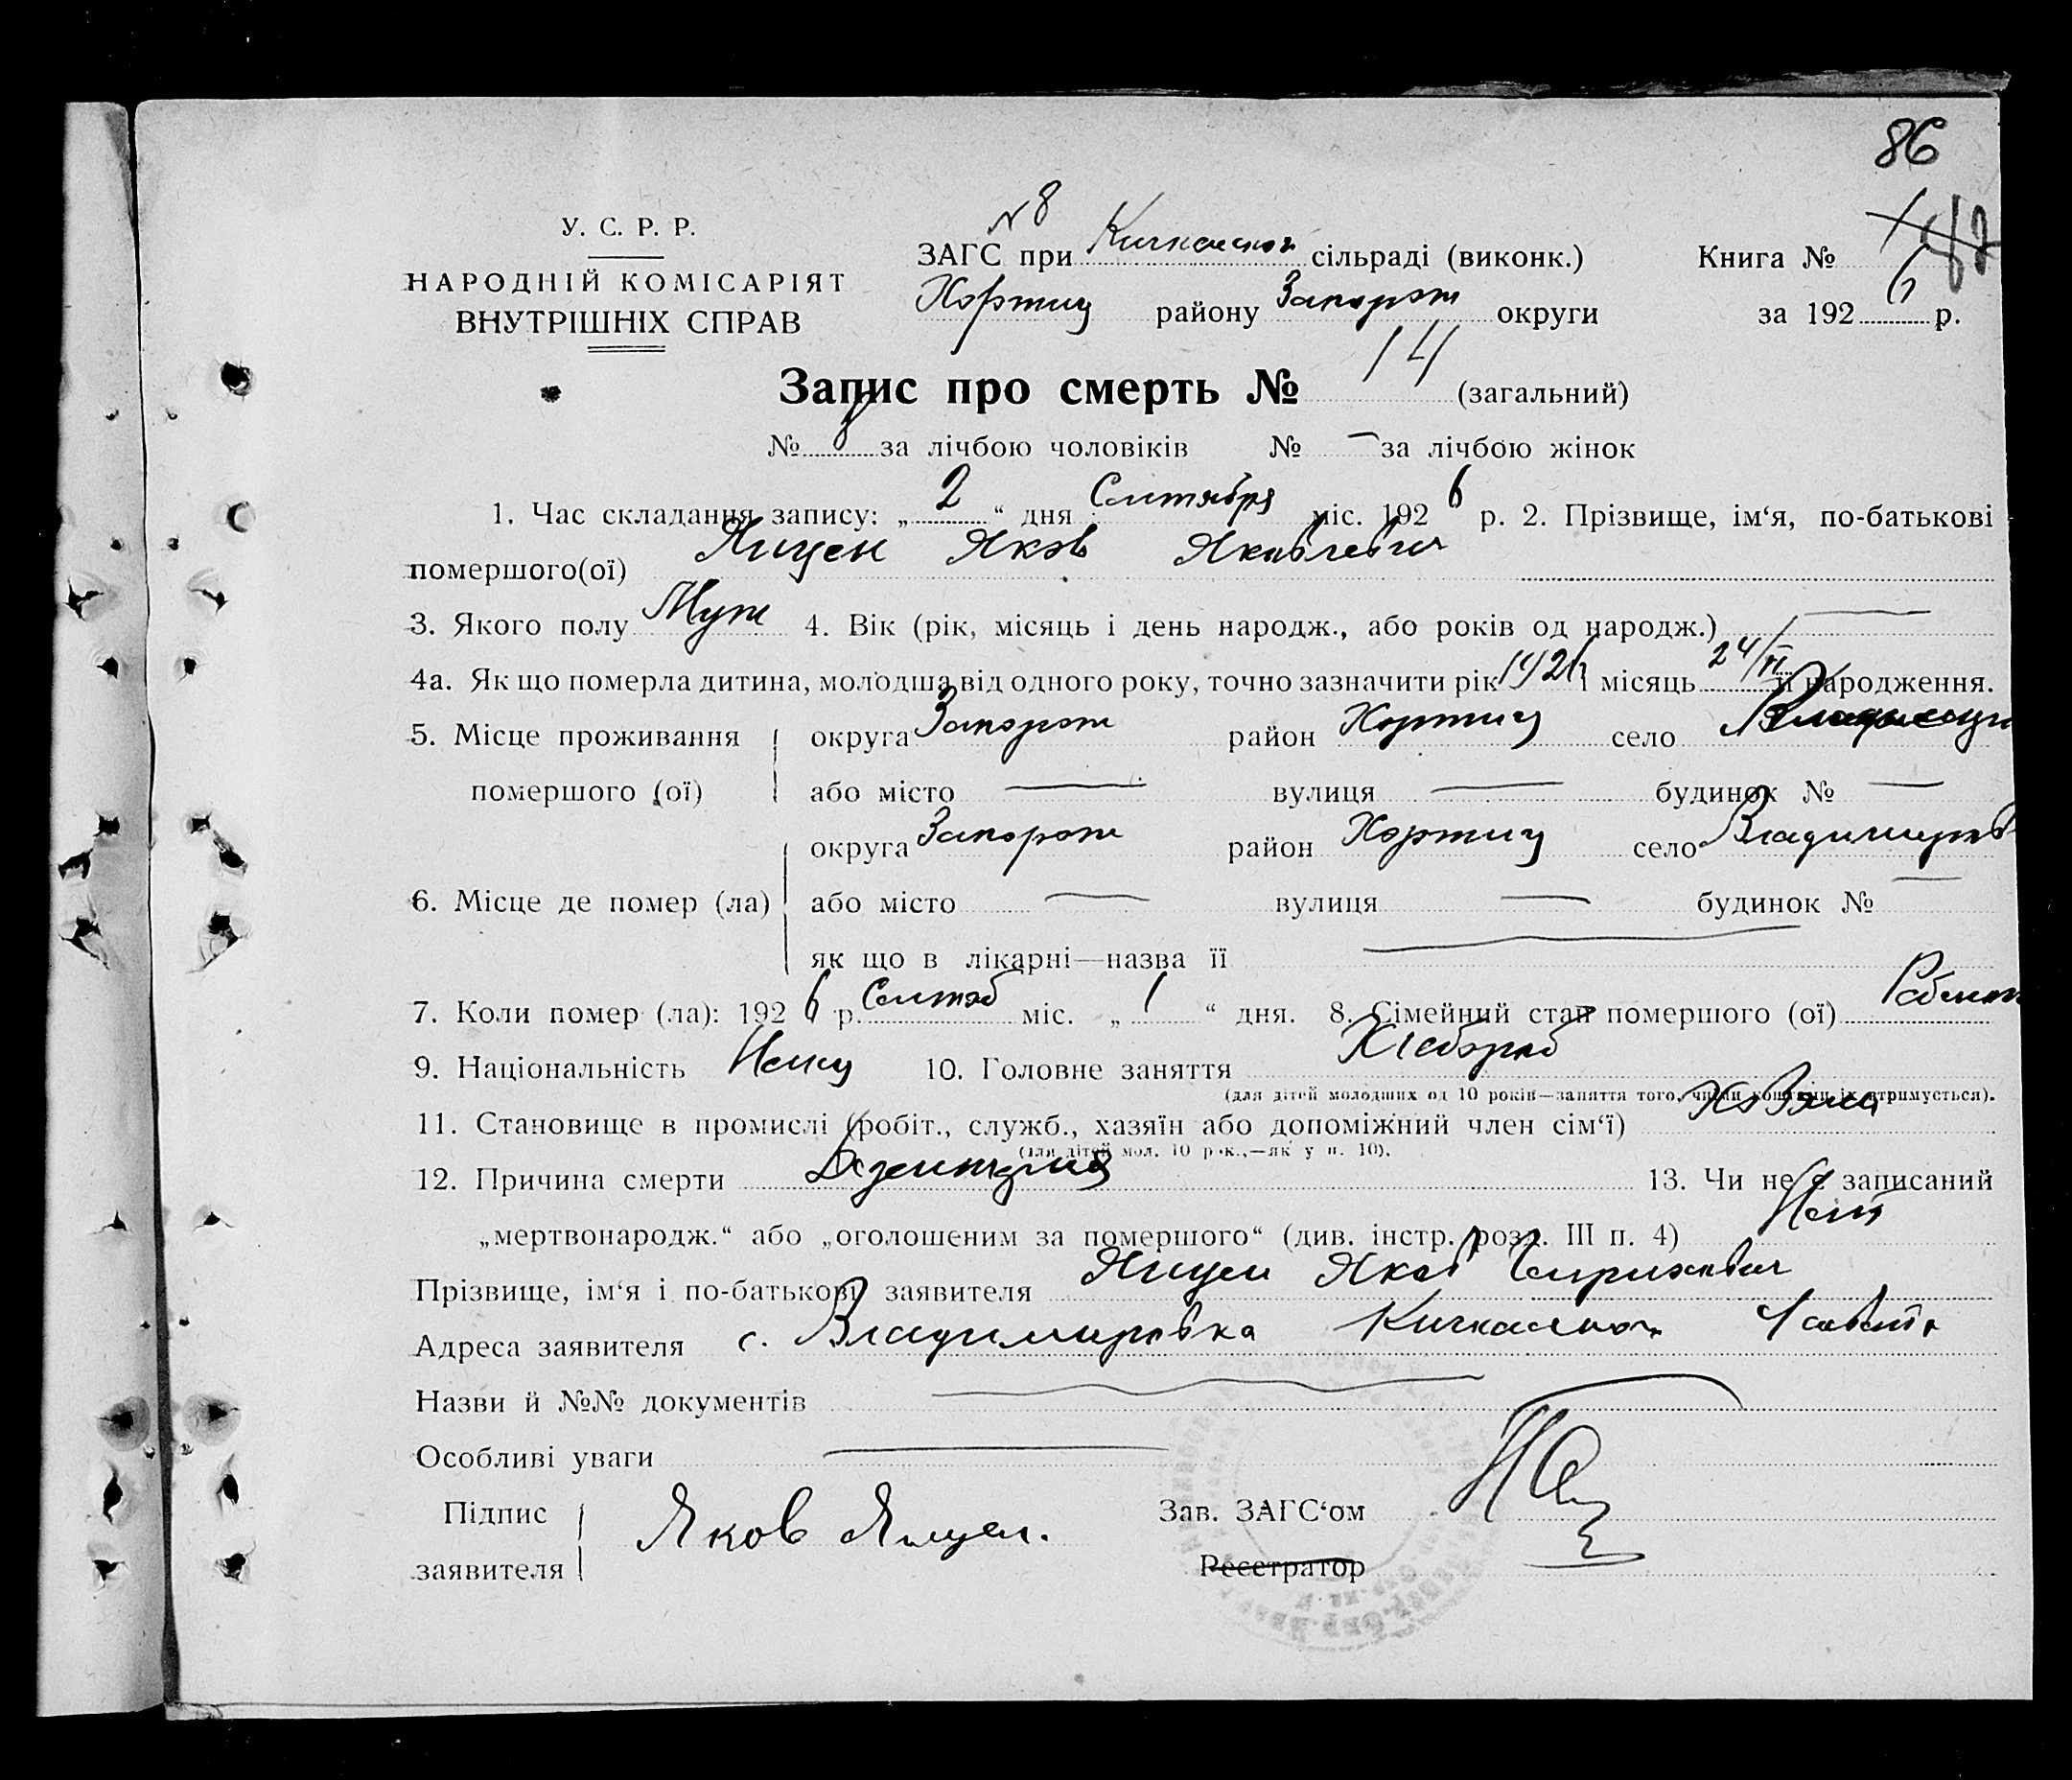 86
У. С. Р. Р.
НАРОДНІЙ КОМІСАРІЯТ
ВНУТРІШНІХ СПРАВ
N 8
ЗАГС при Кичкасской сільраді (виконк.)
Хортиц району Запорож округи
Книга №
за 1926 р.
Запис про смерть № 14 (загальний)
№ 8 за лічбою чоловіків № — за лічбою жінок
1. Час складання запису: „2“ дня Сентября міс. 1926 р. 2. Прізвище, ім‘я, по-батькові
помершого(ої) Янцен Яков Яковлевич
3. Якого полу Муж 4. Вік (рік, місяць і день народж., або років од народж.) —
4а. Як що померла дитина, молодша від одного року, точно зазначити рік 1926 і місяць 24/VI її народження.
5. Місце проживання округа Запорож район Хортиц село
помершого (ої) або місто — вулиця — будинок № —
округа Запорож район Хортиц село Владимиров
6. Місце де помер (ла) або місто — вулиця — будинок № —
як що в лікарні—назва її —
7. Коли помер (ла): 1926 р. Сентяб міс. „1“ дня. 8. Сімейний стан помершого (ої) Ребенок
9. Національність Немц 10. Головне заняття Хлебороб
(для дітей молодших од 10 років—заняття того, чиїми коштами їх утримується).
11. Становище в промислі (робіт., служб., хазяїн або допоміжний член сім‘ї) Хозяин
(для дітей мол. 10 рок.,—як у п. 10).
12. Причина смерти Дезентерия 13. Чи не є записаний
„мертвонародж.“ або „оголошеним за помершого“ (див. інстр. розд. III п. 4) Нет
Прізвище, ім‘я і по-батькові заявителя Янцен Яков Генрихович
Адреса заявителя с. Владимировка Кичкасской
Назви й №№ документів —
Особливі уваги —
Підпис
заявителя Яков Янцен.
Зав. ЗАГС‘ом
Реєстратор